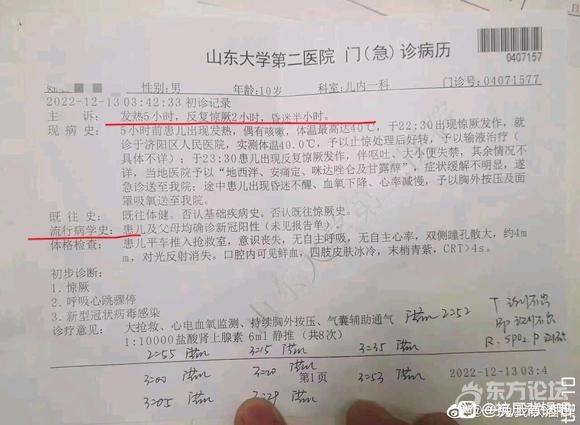 山东大学第二医院 门（急）诊病历
0407157
性别：男 年龄：10岁 科室：儿内一科 门诊号：04071577
2022-12-13 03:42:33 初诊记录
主 诉： 发热5小时，反复惊厥2小时，昏迷半小时。
现 病 史： 5小时前患儿出现发热，偶有咳嗽，体温最高达40℃，于22:30出现惊厥发作，就
诊于济阳区人民医院，实测体温40.0℃，予以止惊处理后好转，予以输液治疗（
具体不详）；于23:30患儿出现反复惊厥发作，伴呕吐、大小便失禁，其余情况不
详，当地医院予以“地西泮、安痛定、咪达唑仑及甘露醇”，症状缓解不明显，遂
急诊送至我院；途中患儿出现昏迷不醒、血氧下降、心率减慢，予以胸外按压及面
罩吸氧送至我院。
既 往 史： 既往体健。否认基础疾病史。否认既往惊厥史。
流行病学史： 患儿及父母均确诊新冠阳性（未见报告单）
体格检查： 患儿平车推入抢救室，意识丧失，无自主呼吸，无自主心率，双侧瞳孔散大，约4m
m，对光反射消失。口腔内可见鲜血，四肢皮肤冰冷，末梢青紫，CRT>4s。
初步诊断：
1. 惊厥
2. 呼吸心跳骤停
3. 新型冠状病毒感染
诊疗意见： 大抢救、心电血氧监测、持续胸外按压、气囊辅助通气
1:10000盐酸肾上腺素 6ml 静推（共8次）
2:52
T 测不出
Bp 测不出
R. SPO2. P
2:55 3:15 3:35
3:00 3:20 第1页 3:53 2022-12-13 03:4
3:05 3:29
东方论坛